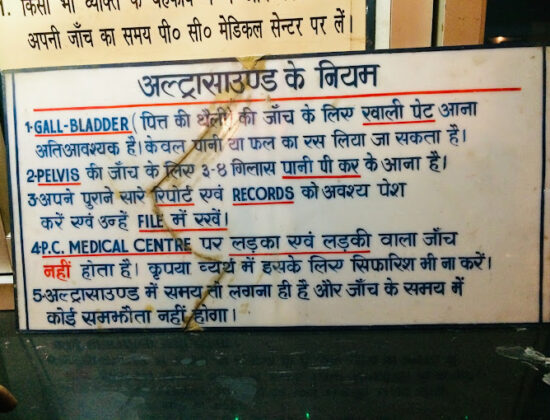 1. किसी भी व्यक्ति के
अपनी जाँच का समय पी० सी० मेडिकल सेन्टर पर लें।
अल्ट्रासाउण्ड के नियम
1-GALL-BLADDER (पित्त की थैली) की जाँच के लिए खाली पेट आना
अतिआवश्यक है। केवल पानी या फल का रस लिया जा सकता है।
2-PELVIS की जाँच के लिए ३-४ गिलास पानी पी कर के आना है।
3-अपने पुराने सारे रिपोर्ट एवं RECORDS को अवश्य पेश
करें एवं उन्हें FILE में रखें।
4-P.C. MEDICAL CENTRE पर लड़का एवं लड़की वाला जाँच
नहीं होता है। कृपया व्यर्थ में इसके लिए सिफारिश भी ना करें।
5-अल्ट्रासाउण्ड में समय तो लगना ही है और जाँच के समय में
कोई समझौता नहीं होगा।